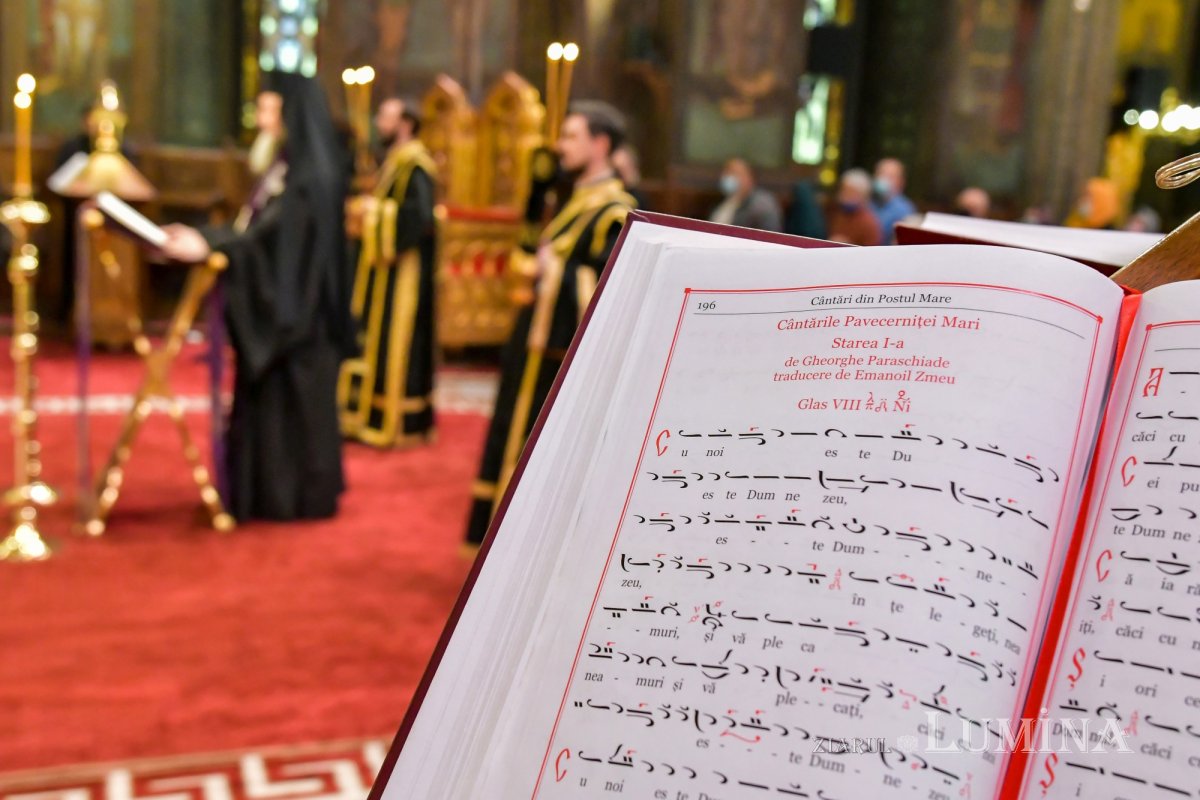 196
Cântări din Postul Mare
Cântările Pavecerniței Mari
Starea I-a
de Gheorghe Paraschiade
traducere de Emanoil Zmeu
Glas VIII Ni
C u noi es te Du
es te Dum ne zeu,
es - - te Dum - - - ne -
zeu, în țe le - geți, nea
- - muri, și vă ple ca
nea - muri și vă ple - - cați, căci
es - - - te Dum - - ne -
C u noi es te Dum
A
căci cu
C ei pu
te Dum ne
C ă ia
iți, căci cu
Ș i ori
Dum ne căci
Ș
ZIARUL LUMINA